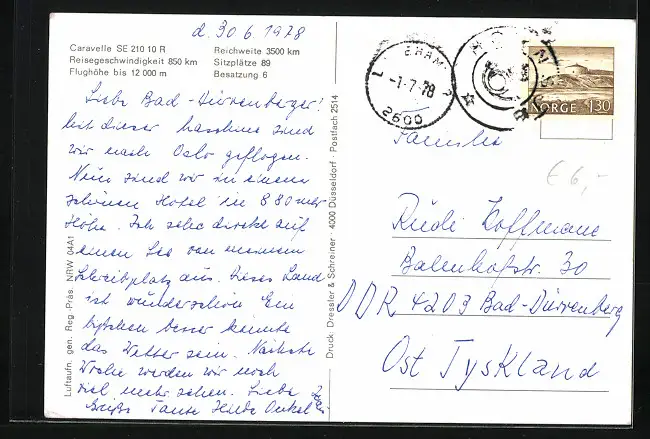 d. 30 6. 1978
Caravelle SE 210 10 R Reichweite 3500 km
Reisegeschwindigkeit 850 km Sitzplätze 89
Flughöhe bis 12 000 m Besatzung 6
Liebe Bad-Dürrenberger!
Mit dieser Maschine sind
wir nach Oslo geflogen.
Nun sind wir in einem
schönen Hotel in 880 mtr
Höhe. Ich sehe direkt auf
einen See von meinem
Schreibplatz aus. Dieses Land
ist wunderschön. Ein
bißchen besser könnte
das Wetter sein. Nächste
Woche werden wir noch
viel mehr sehen. Liebe
Grüße Tante Onkel
Luftaufn. gen. Reg.-Präs. NRW 04A1
Druck: Dressler & Schreiner · 4000 Düsseldorf · Postfach 2514
-1.-7.78
2600
NORGE 130
€ 6,-
Familie
Rudi Koffmane
Balenhofstr. 30
DDR 4203 Bad-Dürrenberg
Ost Tyskland